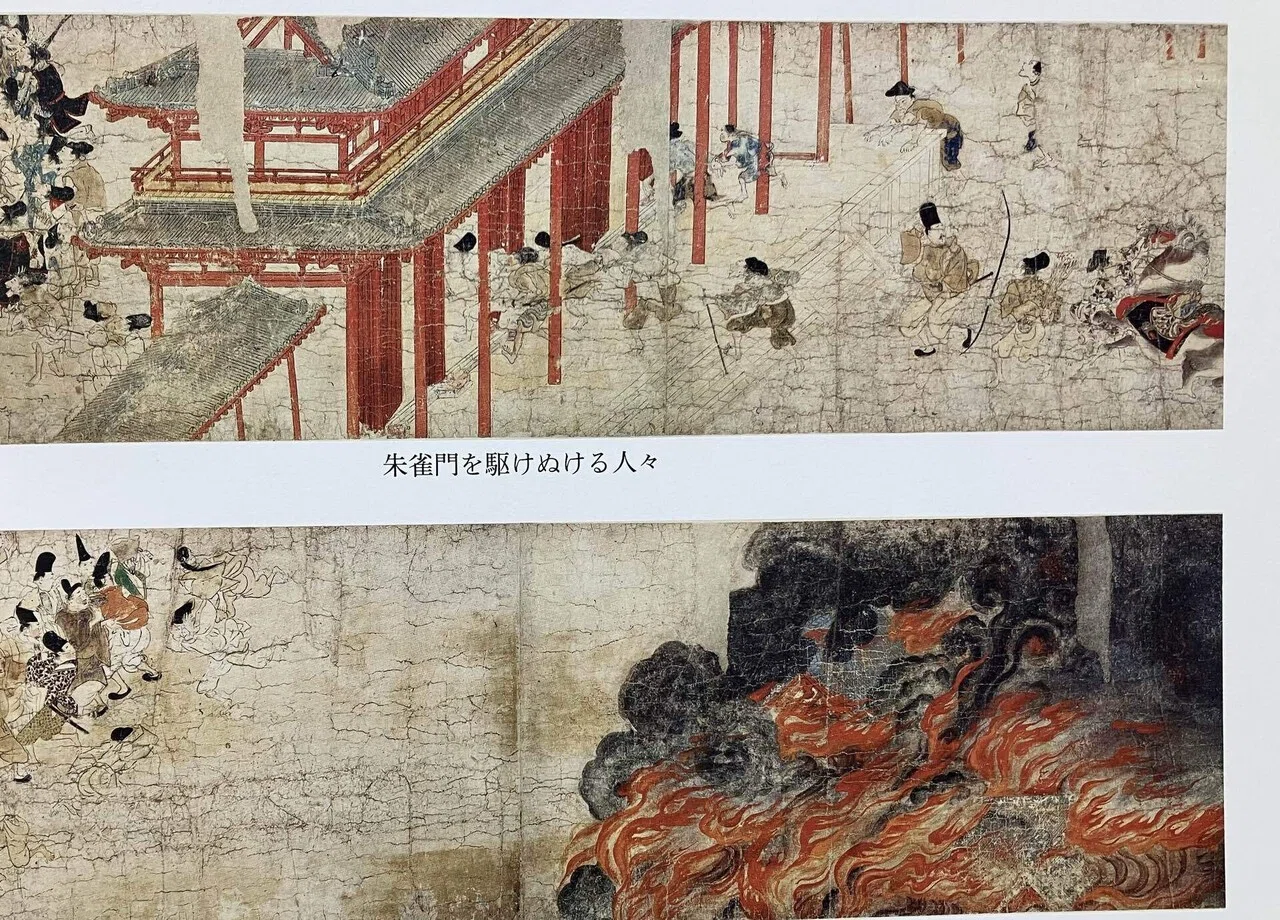 朱雀門を駆けぬける人々